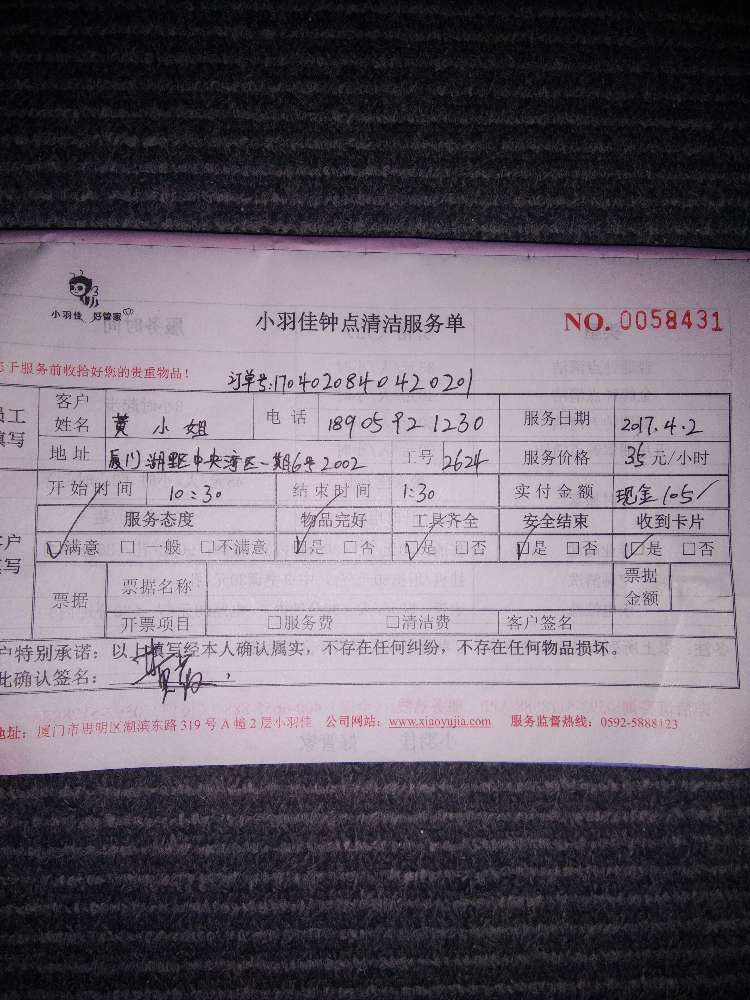 小羽佳 好管家
小羽佳钟点清洁服务单
NO. 0058431
于服务前收拾好您的贵重物品!
订单号:1704020840420201
员工填写
客户姓名 黄小姐 电话 18905921230 服务日期 2017.4.2
地址 厦门湖里区中央湾区一期6号2002 工号 2624 服务价格 35元/小时
开始时间 10:30 结束时间 1:30 实付金额 现金105/
服务态度 物品完好 工具齐全 安全结束 收到卡片
户填写
☑满意 □一般 □不满意 ☑是 □否 ☑是 □否 ☑是 □否 ☑是 □否
票据 票据名称 票据金额
开票项目 □服务费 □清洁费 客户签名
户特别承诺:以上填写经本人确认属实,不存在任何纠纷,不存在任何物品损坏。
此确认签名:
地址:厦门市思明区湖滨东路319号A幢2层小羽佳 公司网站:www.xiaoyujia.com 服务监督热线:0592-5888123